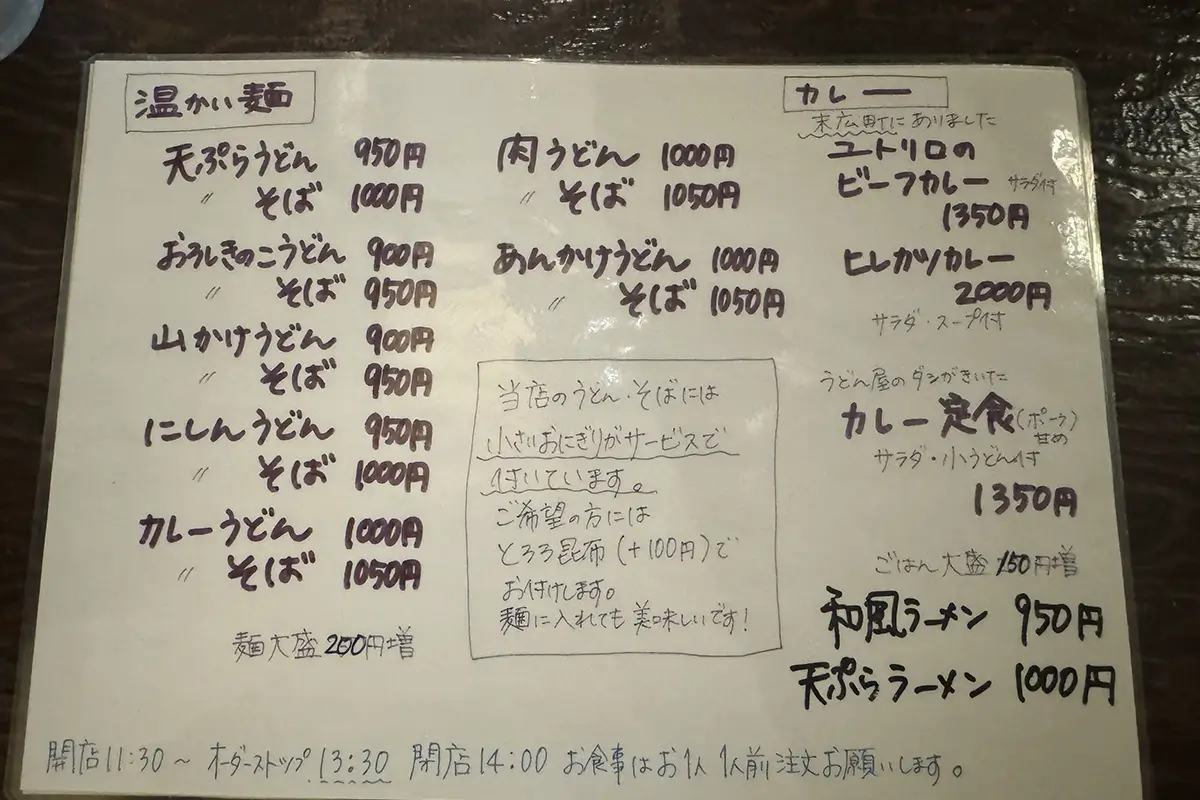 温かい麺
天ぷらうどん 950円
〃 そば 1000円
おろしきのこうどん 900円
〃 そば 950円
山かけうどん 900円
〃 そば 950円
にしんうどん 950円
〃 そば 1000円
カレーうどん 1000円
〃 そば 1050円
麺大盛 200円増
肉うどん 1000円
〃 そば 1050円
あんかけうどん 1000円
〃 そば 1050円
当店のうどん・そばには
小さいおにぎりがサービスで
付いています。
ご希望の方には
とろろ昆布(+100円)で
お付けします。
麺に入れても美味しいです!
カレー
末広町にありました
ユトリロの
ビーフカレー サラダ付
1350円
ヒレカツカレー
2000円
サラダ・スープ付
うどん屋のダシがきいた
カレー定食(ポーク)
甘め
サラダ・小うどん付
1350円
ごはん大盛 150円増
和風ラーメン 950円
天ぷらラーメン 1000円
開店11:30~ オーダーストップ 13:30 閉店14:00 お食事はお1人1人前注文お願いします。